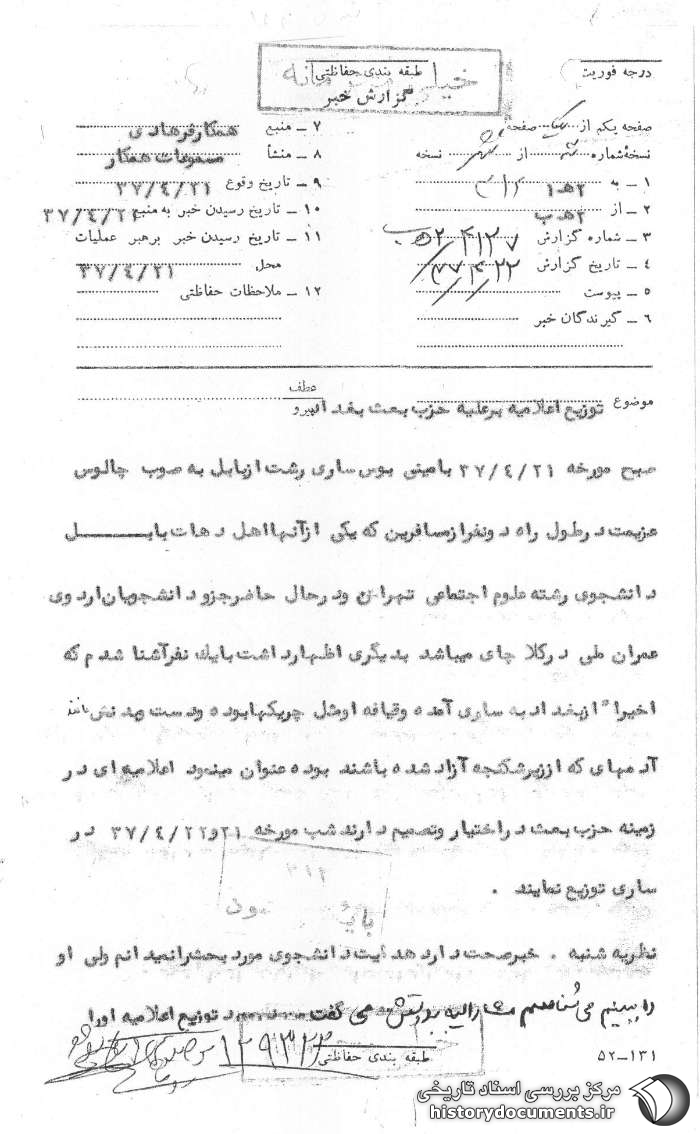 درجه فوریت
طبقه بندی حفاظتی
گزارش خبر
صفحه یکم از یک صفحه
نسخهٔ شماره از نسخه
۱ ــ به ۲هـ۱
۲ ــ از ۲هـ ب
۳ ــ شماره گزارش
۴ ــ تاریخ گزارش ۳۷/۴/۲۲
۵ ــ پیوست
۶ ــ گیرندگان خبر
۷ ــ منبع همکار فرهادی
۸ ــ منشأ مسموعات همکار
۹ ــ تاریخ وقوع ۳۷/۴/۲۱
۱۰ ــ تاریخ رسیدن خبر به منبع ۳۷/۴/۲۱
۱۱ ــ تاریخ رسیدن خبر برهبر عملیات
محل ۳۷/۴/۲۱
۱۲ ــ ملاحظات حفاظتی
موضوع توزیع اعلامیه برعلیه حزب بعث بغداد
عطف
پیرو
صبح مورخه ۳۷/۴/۲۱ بامینی بوس ساری رشت ازبابل به صوب چالوس
عزیمت درطول راه دونفرازمسافرین که یکی ازآنهااهل دهات بابـــــل
دانشجوی رشته علوم اجتماعی تهران ودرحال حاضرجزو دانشجویان اردوی
عمران ملی درکلاچای میباشد بدیگری اظهارداشت بایك نفرآشنا شدم که
اخیرا" ازبغداد به ساری آمده وقیافه اومثل چریکهابوده ودست وبدنش مانند
آدمهای که اززیرشکنجه آزاد شده باشند بوده عنوان مینمود اعلامیه ای در
زمینه حزب بعث دراختیار وتصمیم دارند شب مورخه ۲۱و۳۷/۴/۲۲ در
ساری توزیع نمایند .
نظریه شنبه . خبرصحت دارد هدایت دانشجوی مورد بحث رانمیدانم ولی او
را ببینم می شناسم مشارالیه بدوستش می گفت توزیع اعلامیه اورا
طبقه بندی حفاظتی
۵۲ــ۱۳۱
مرکز بررسی اسناد تاریخی
historydocuments.ir